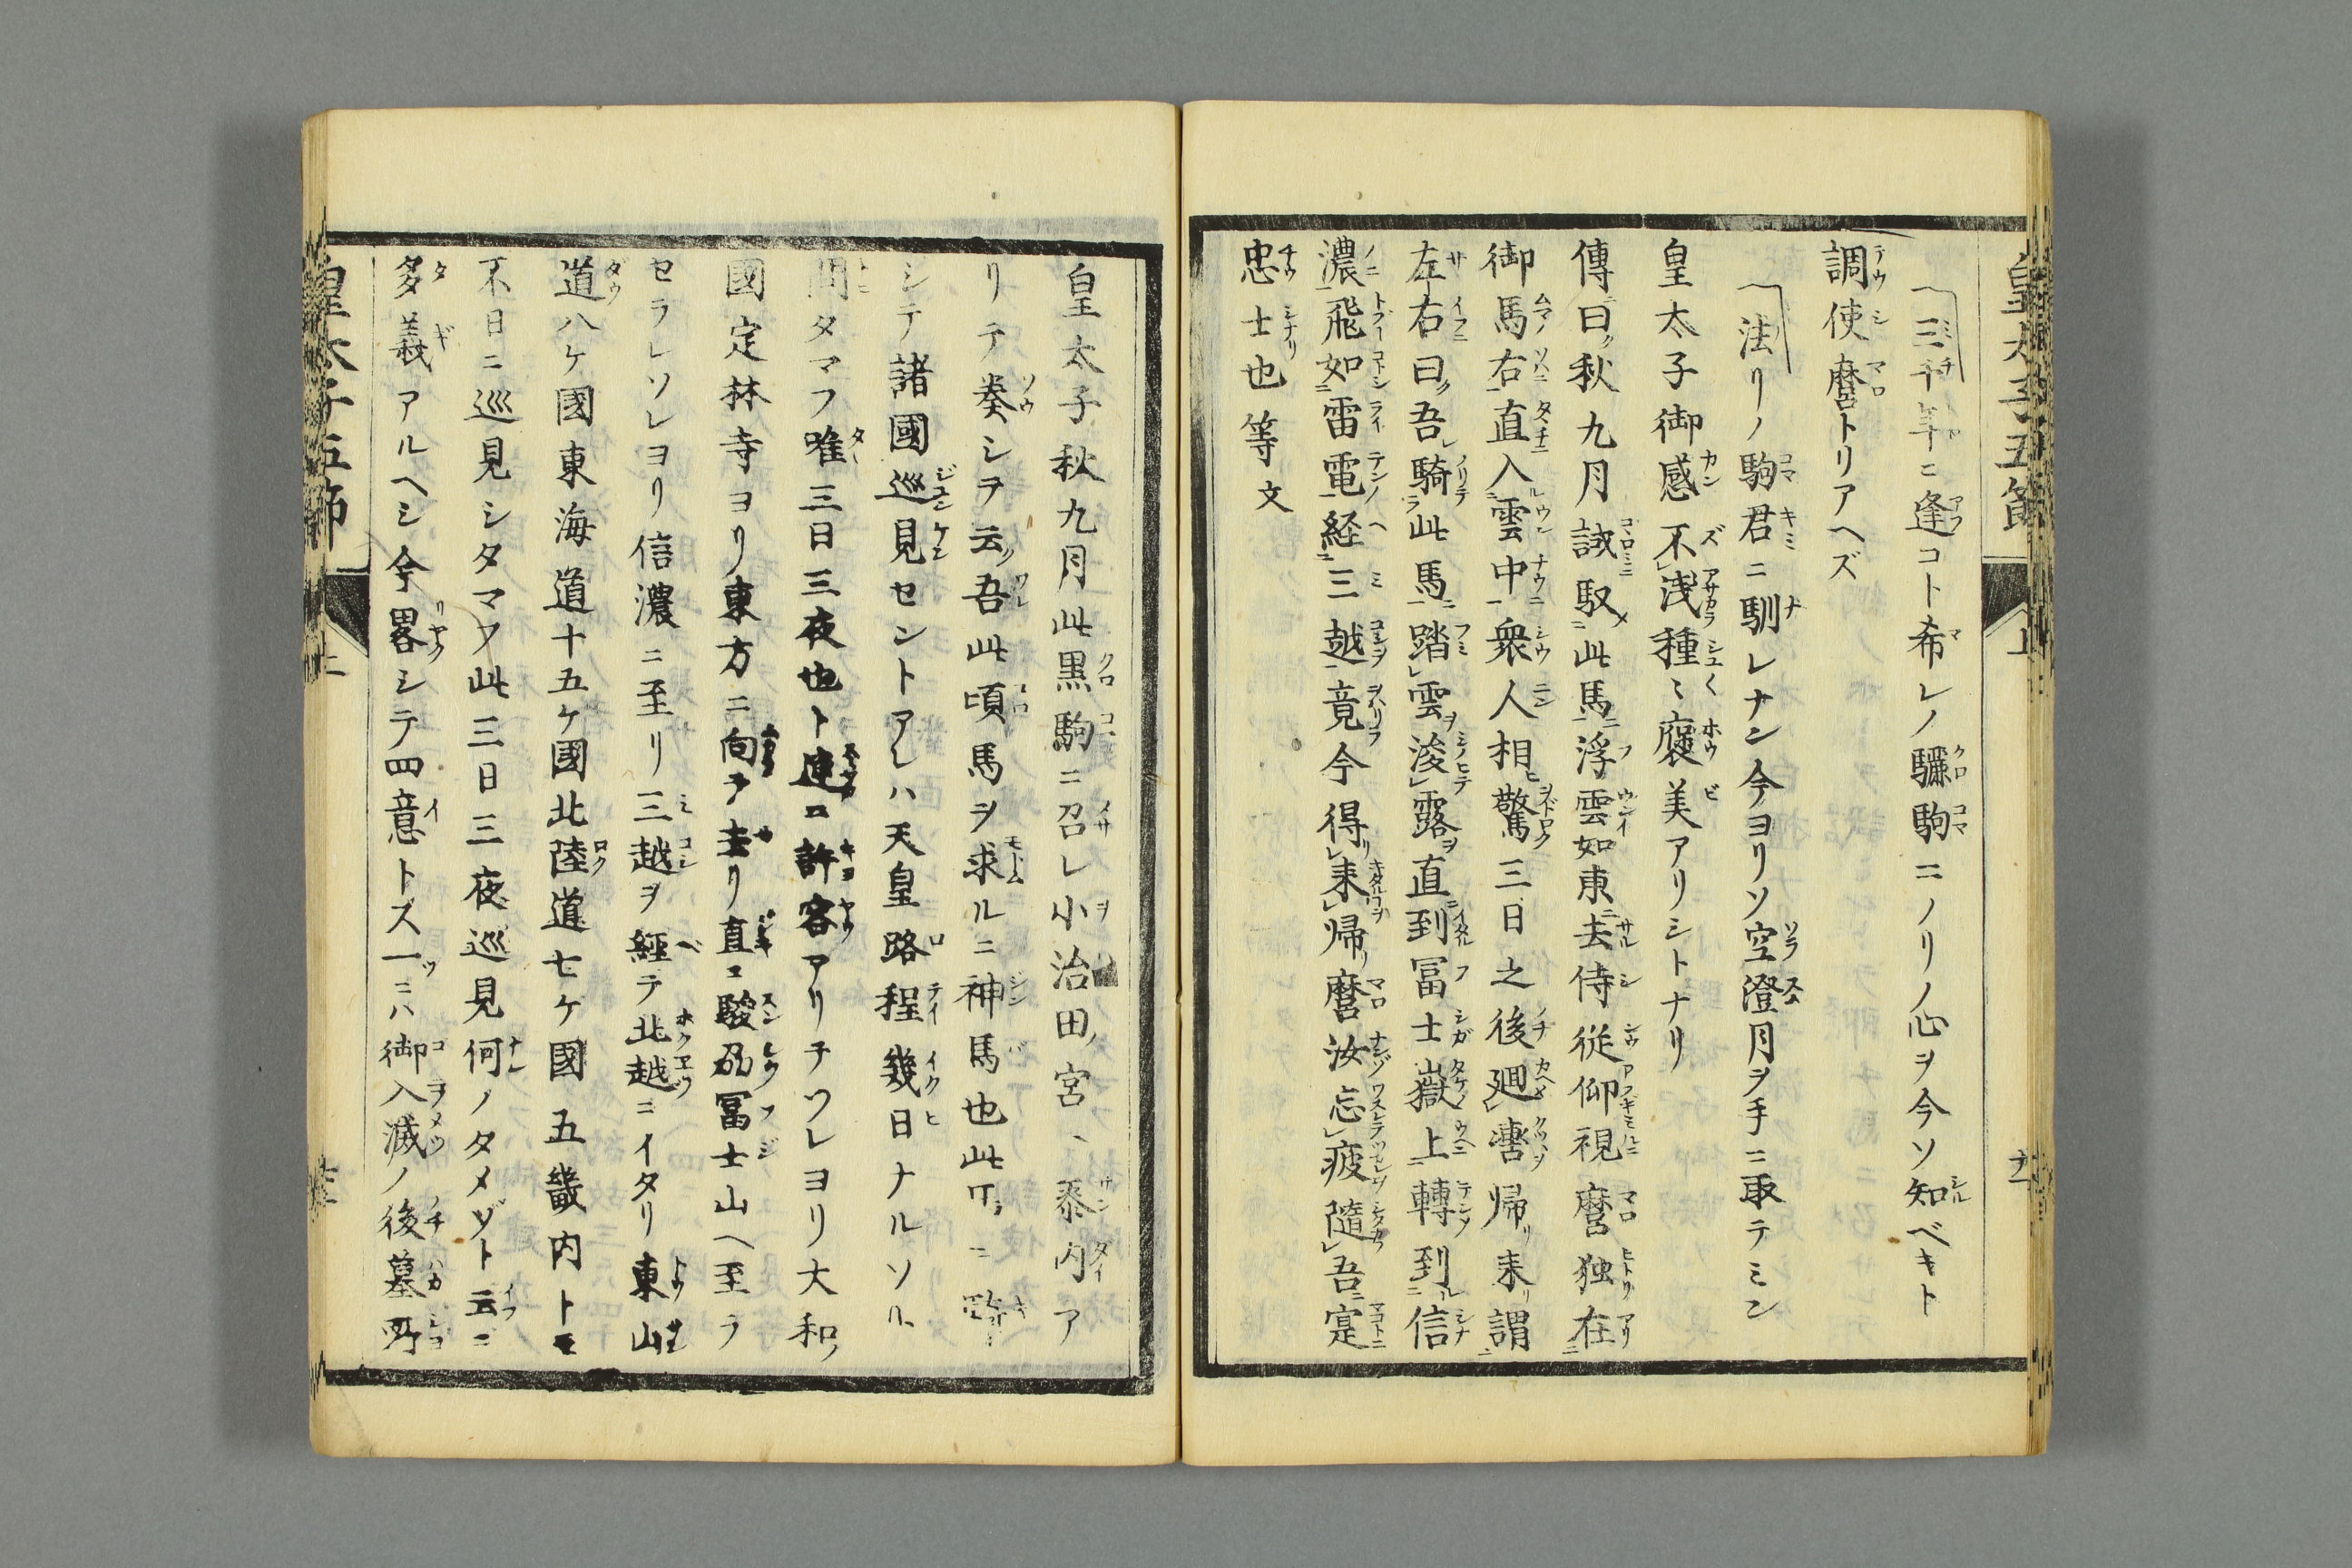 三千年ニ逢コト希レノ驪駒ニノリノ心ヲ今ソ知ベキト
調使麿トリアヘズ
法リノ駒君ニ馴レナン今ヨリソ空澄月ヲ手ニ取テミン
皇太子御感不浅種〻褒美アリシトナリ
傳曰秋九月試馭此馬浮雲如東去侍従仰視麿独在
御馬右直入雲中衆人相驚三日之後廻轡帰来謂
左右曰吾騎此馬踏雲凌露直到冨士嶽上轉到信
濃飛如雷電経三越竟今得来帰麿汝忘疲隨吾寔
忠士也等文
皇太子秋九月此黒駒ニ召レ小治田ノ宮、泰内ア
リテ奏シヲ云ク吾此頃馬ヲ求ルニ神馬也此
シテ諸國巡見セントアレハ天皇路程幾日ナルソト
問タマフ唯三日三夜也ト速ニ許容アリテワレヨリ大和ノ
國定林寺ヨリ東方ニ向テ去リ直ニ駿州冨士山ヘ至ラ
セラレソレヨリ信濃ニ至リ三越ヲ經テ北越ニイタリ東山
道八ケ國東海道十五ケ國北陸道七ケ國五畿内トモ
不日ニ巡見シタマフ此三日三夜巡見何ノタメゾト云ニ
多義アルヘシ今畧シテ四意トス一ニハ御入滅ノ後墓所